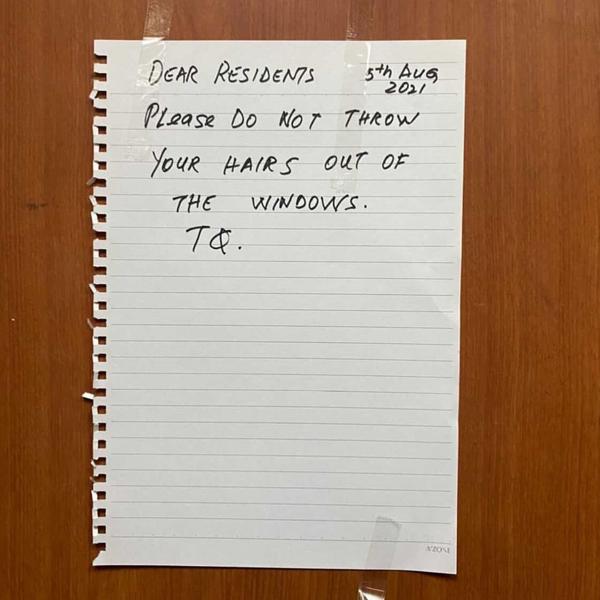 DEAR RESIDENTS 5th AUG,
2021
PLease DO NOT THROW
YOUR HAIRS OUT OF
THE WINDOWS.
TQ.